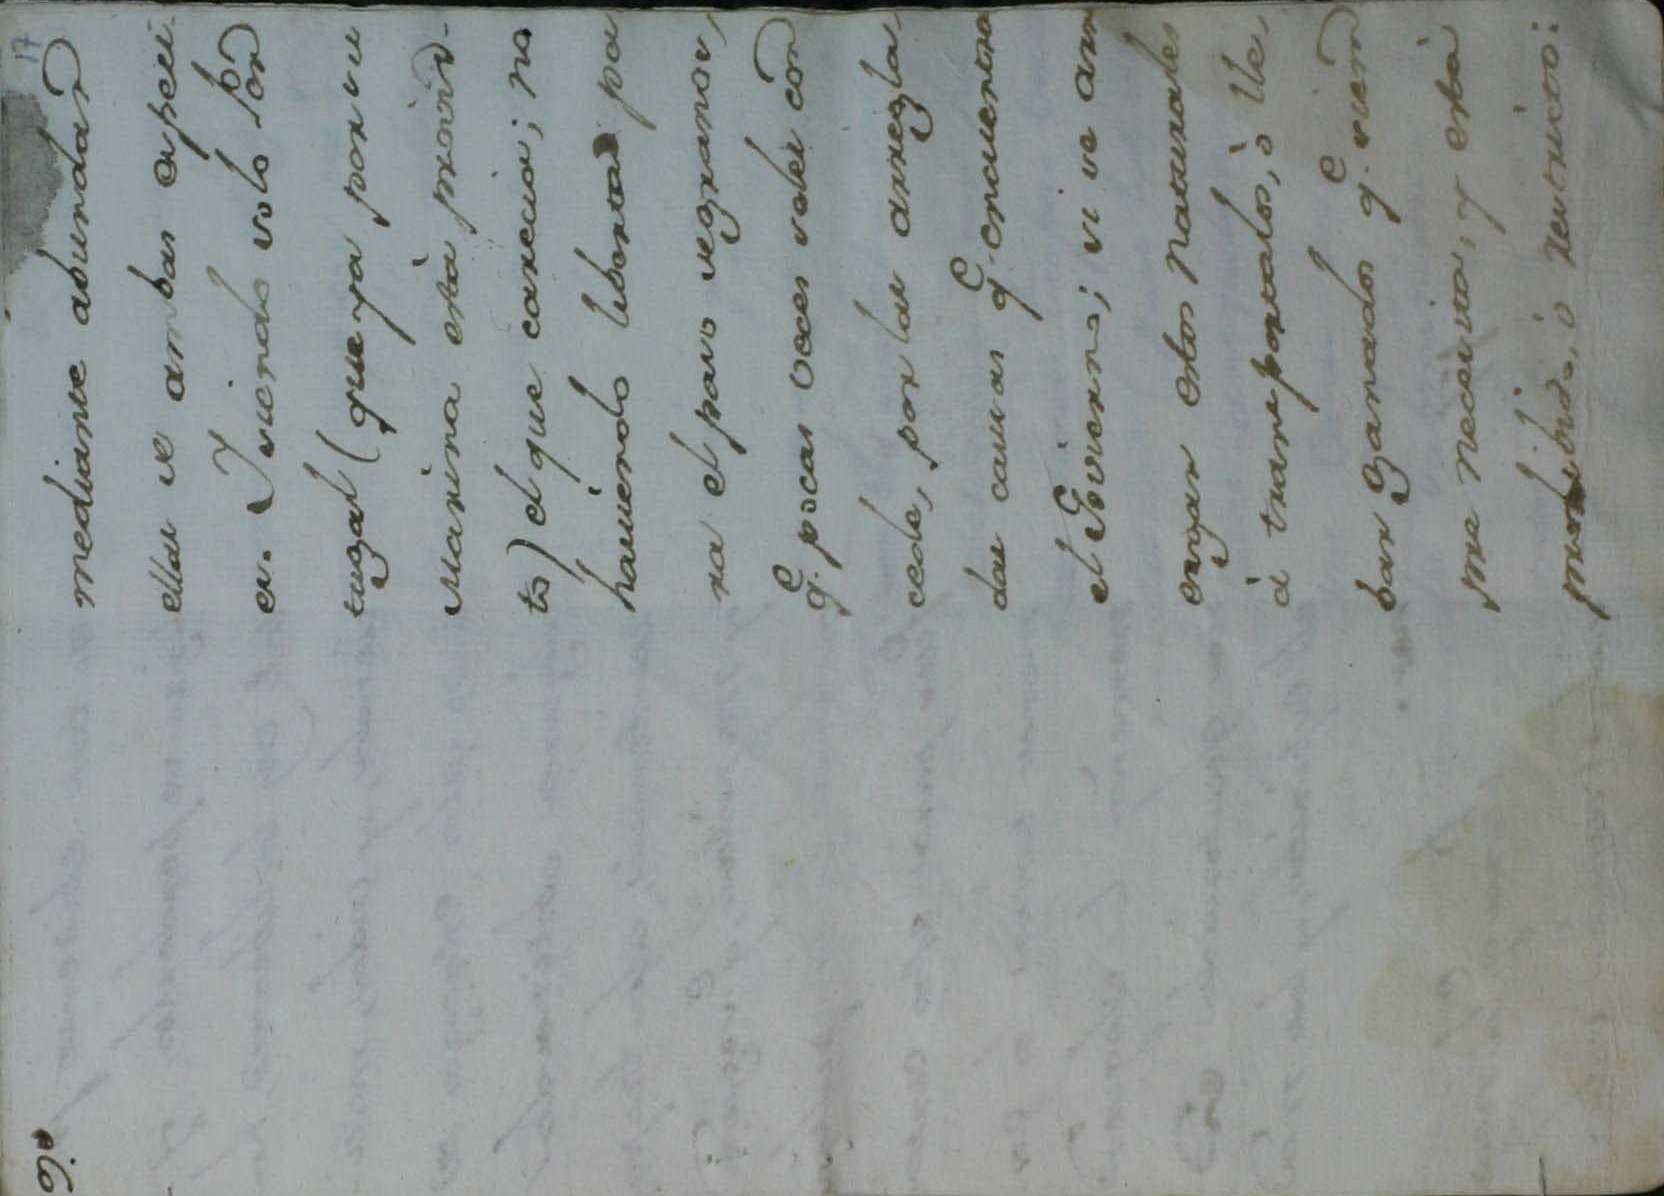 17
mediante abundan
ellas se ambas especi-
es. Y siendo solo Por
tugal (que ya por su
Marina está provis-
to) el que carecia; no
haviendo libertad pa
ra el paso segranos,
q.e pocas veces se les con
cede, por las arregla,
das causas q.e encuentra
el Govierno; si se am
engan estos naturales
á transportalos, ò lle,
ban ganados q.e tien
pre necesita, y está
prohibido, ò restricto:
9.